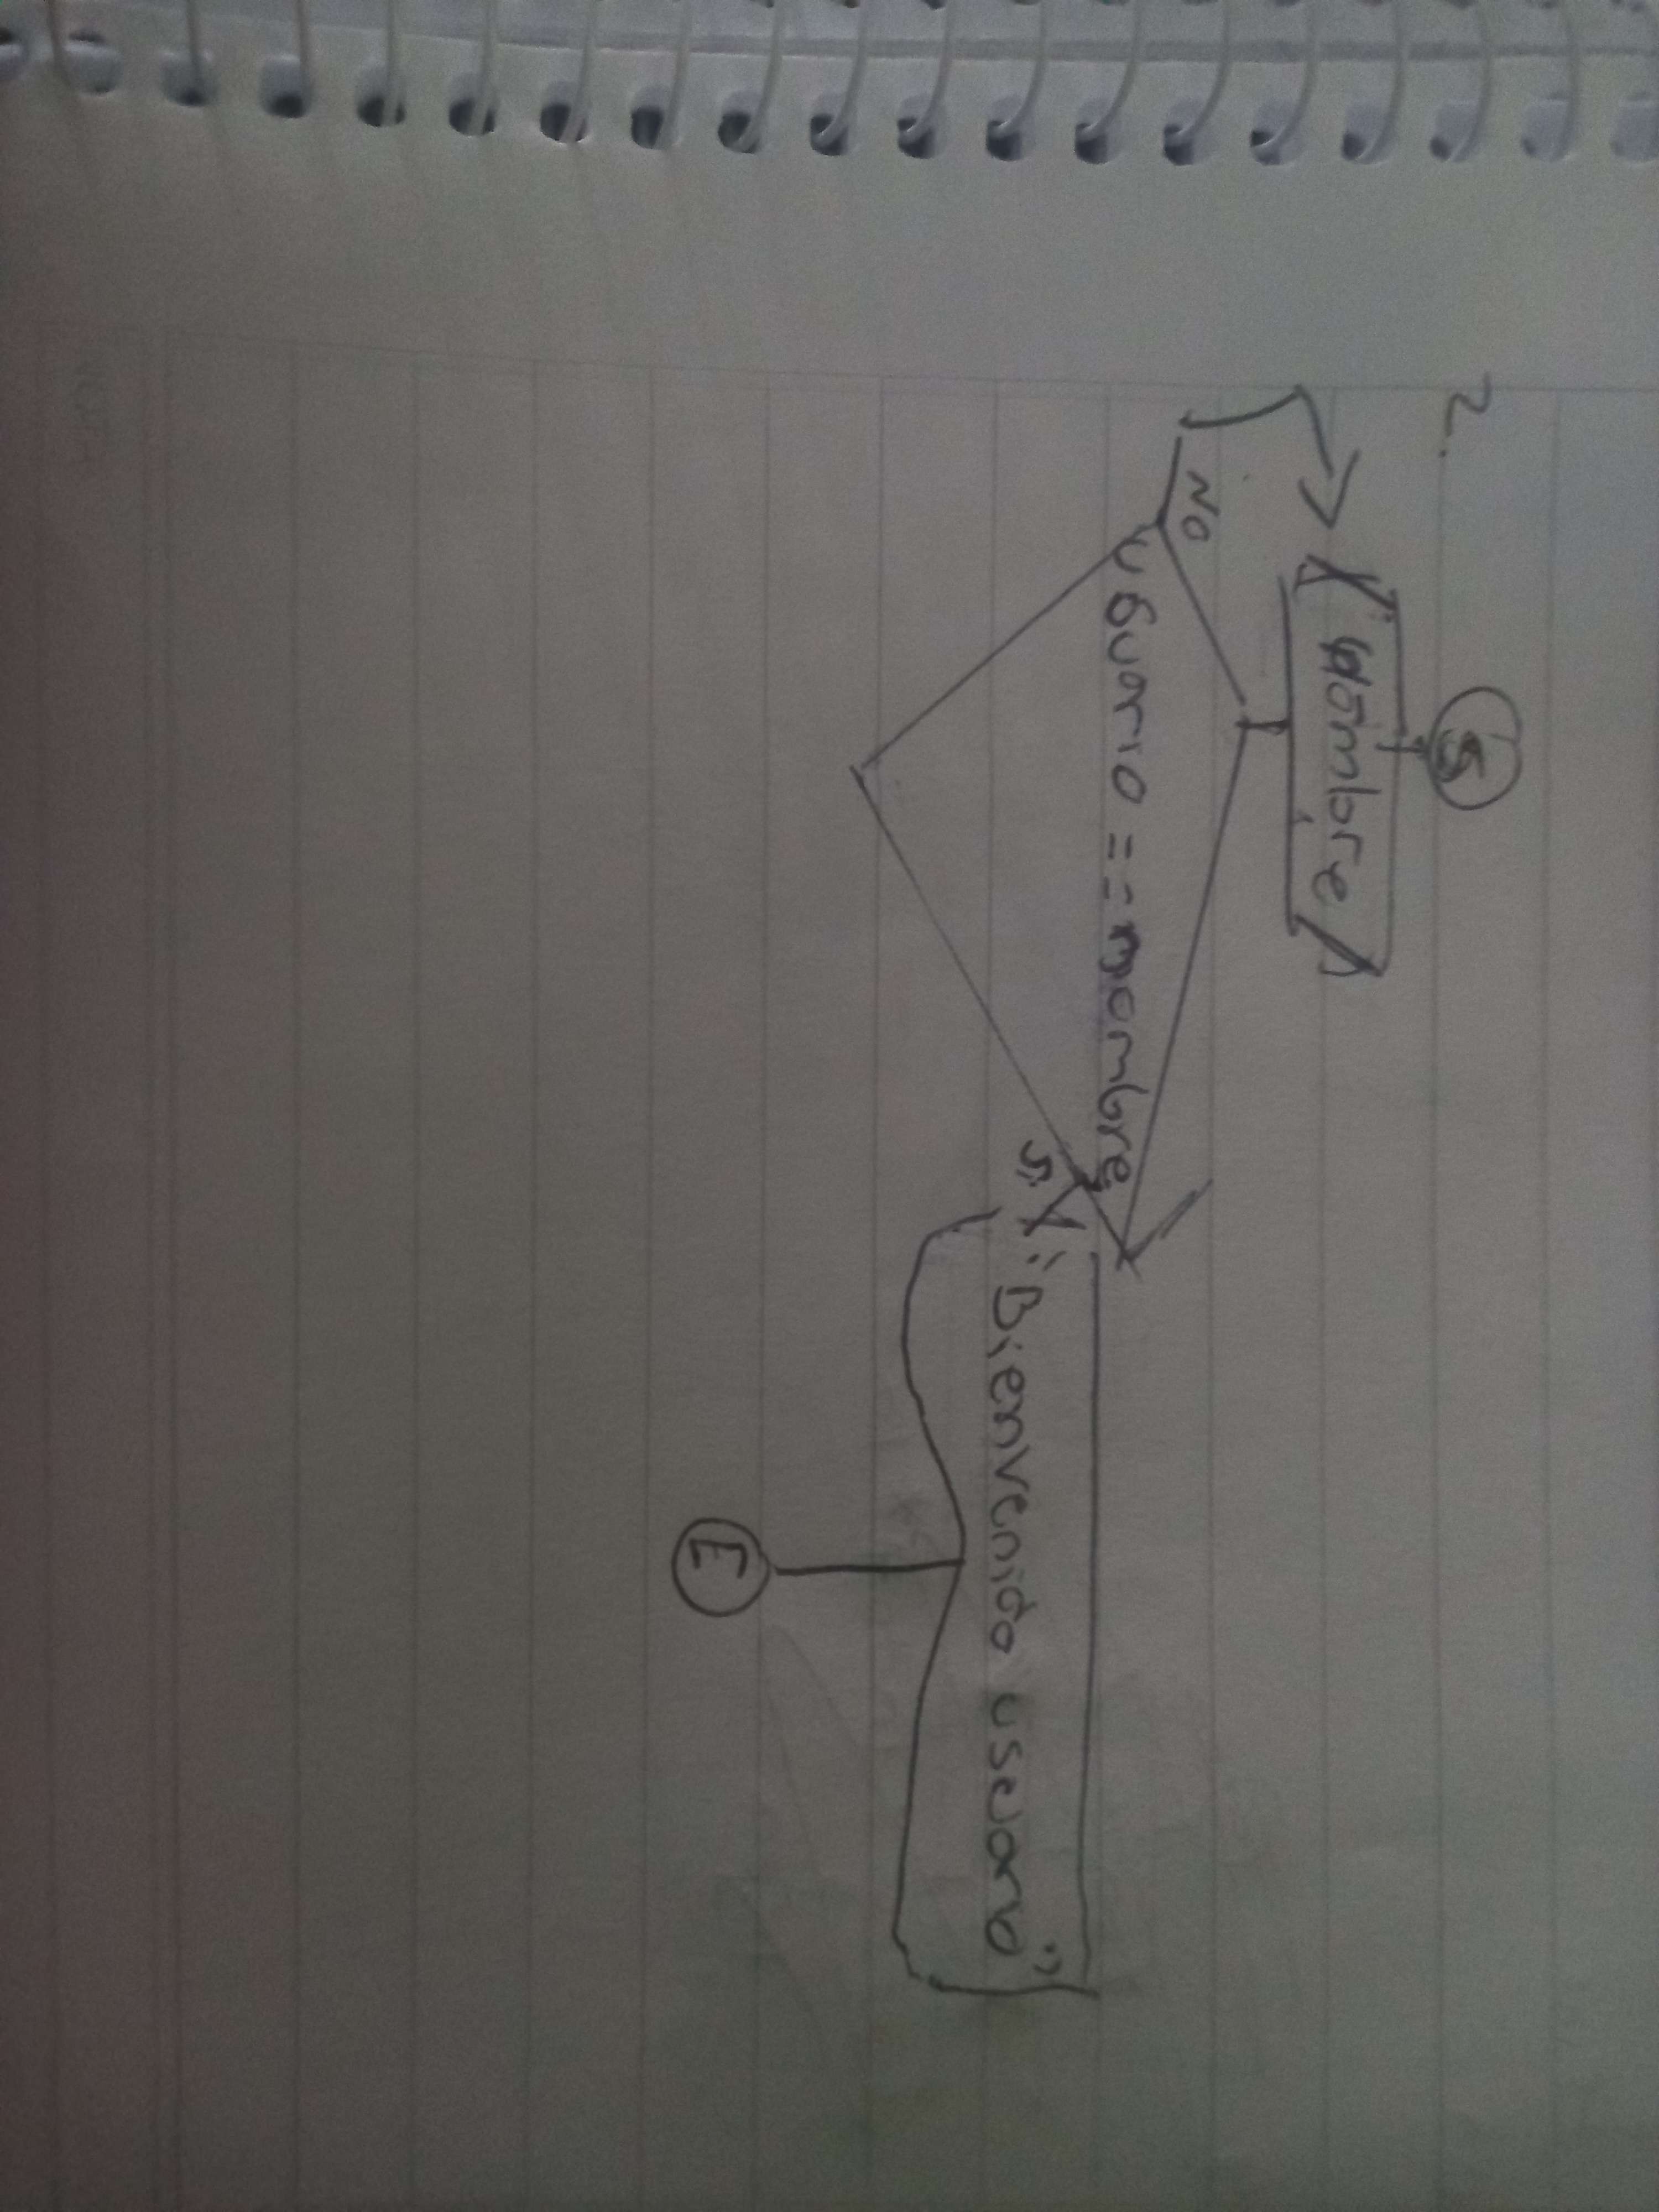 2.
S
nombre
usuario == nombre
No
Si
"Bienvenido usuario"
E